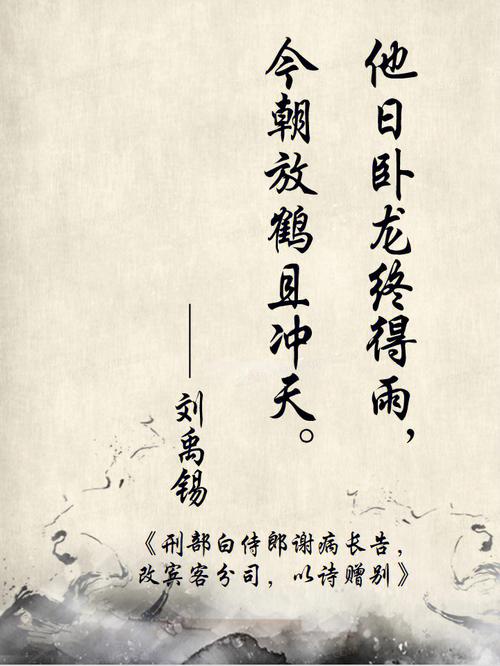 他日卧龙终得雨，
今朝放鹤且冲天。
——刘禹锡
《刑部白侍郎谢病长告，
改宾客分司，以诗赠别》